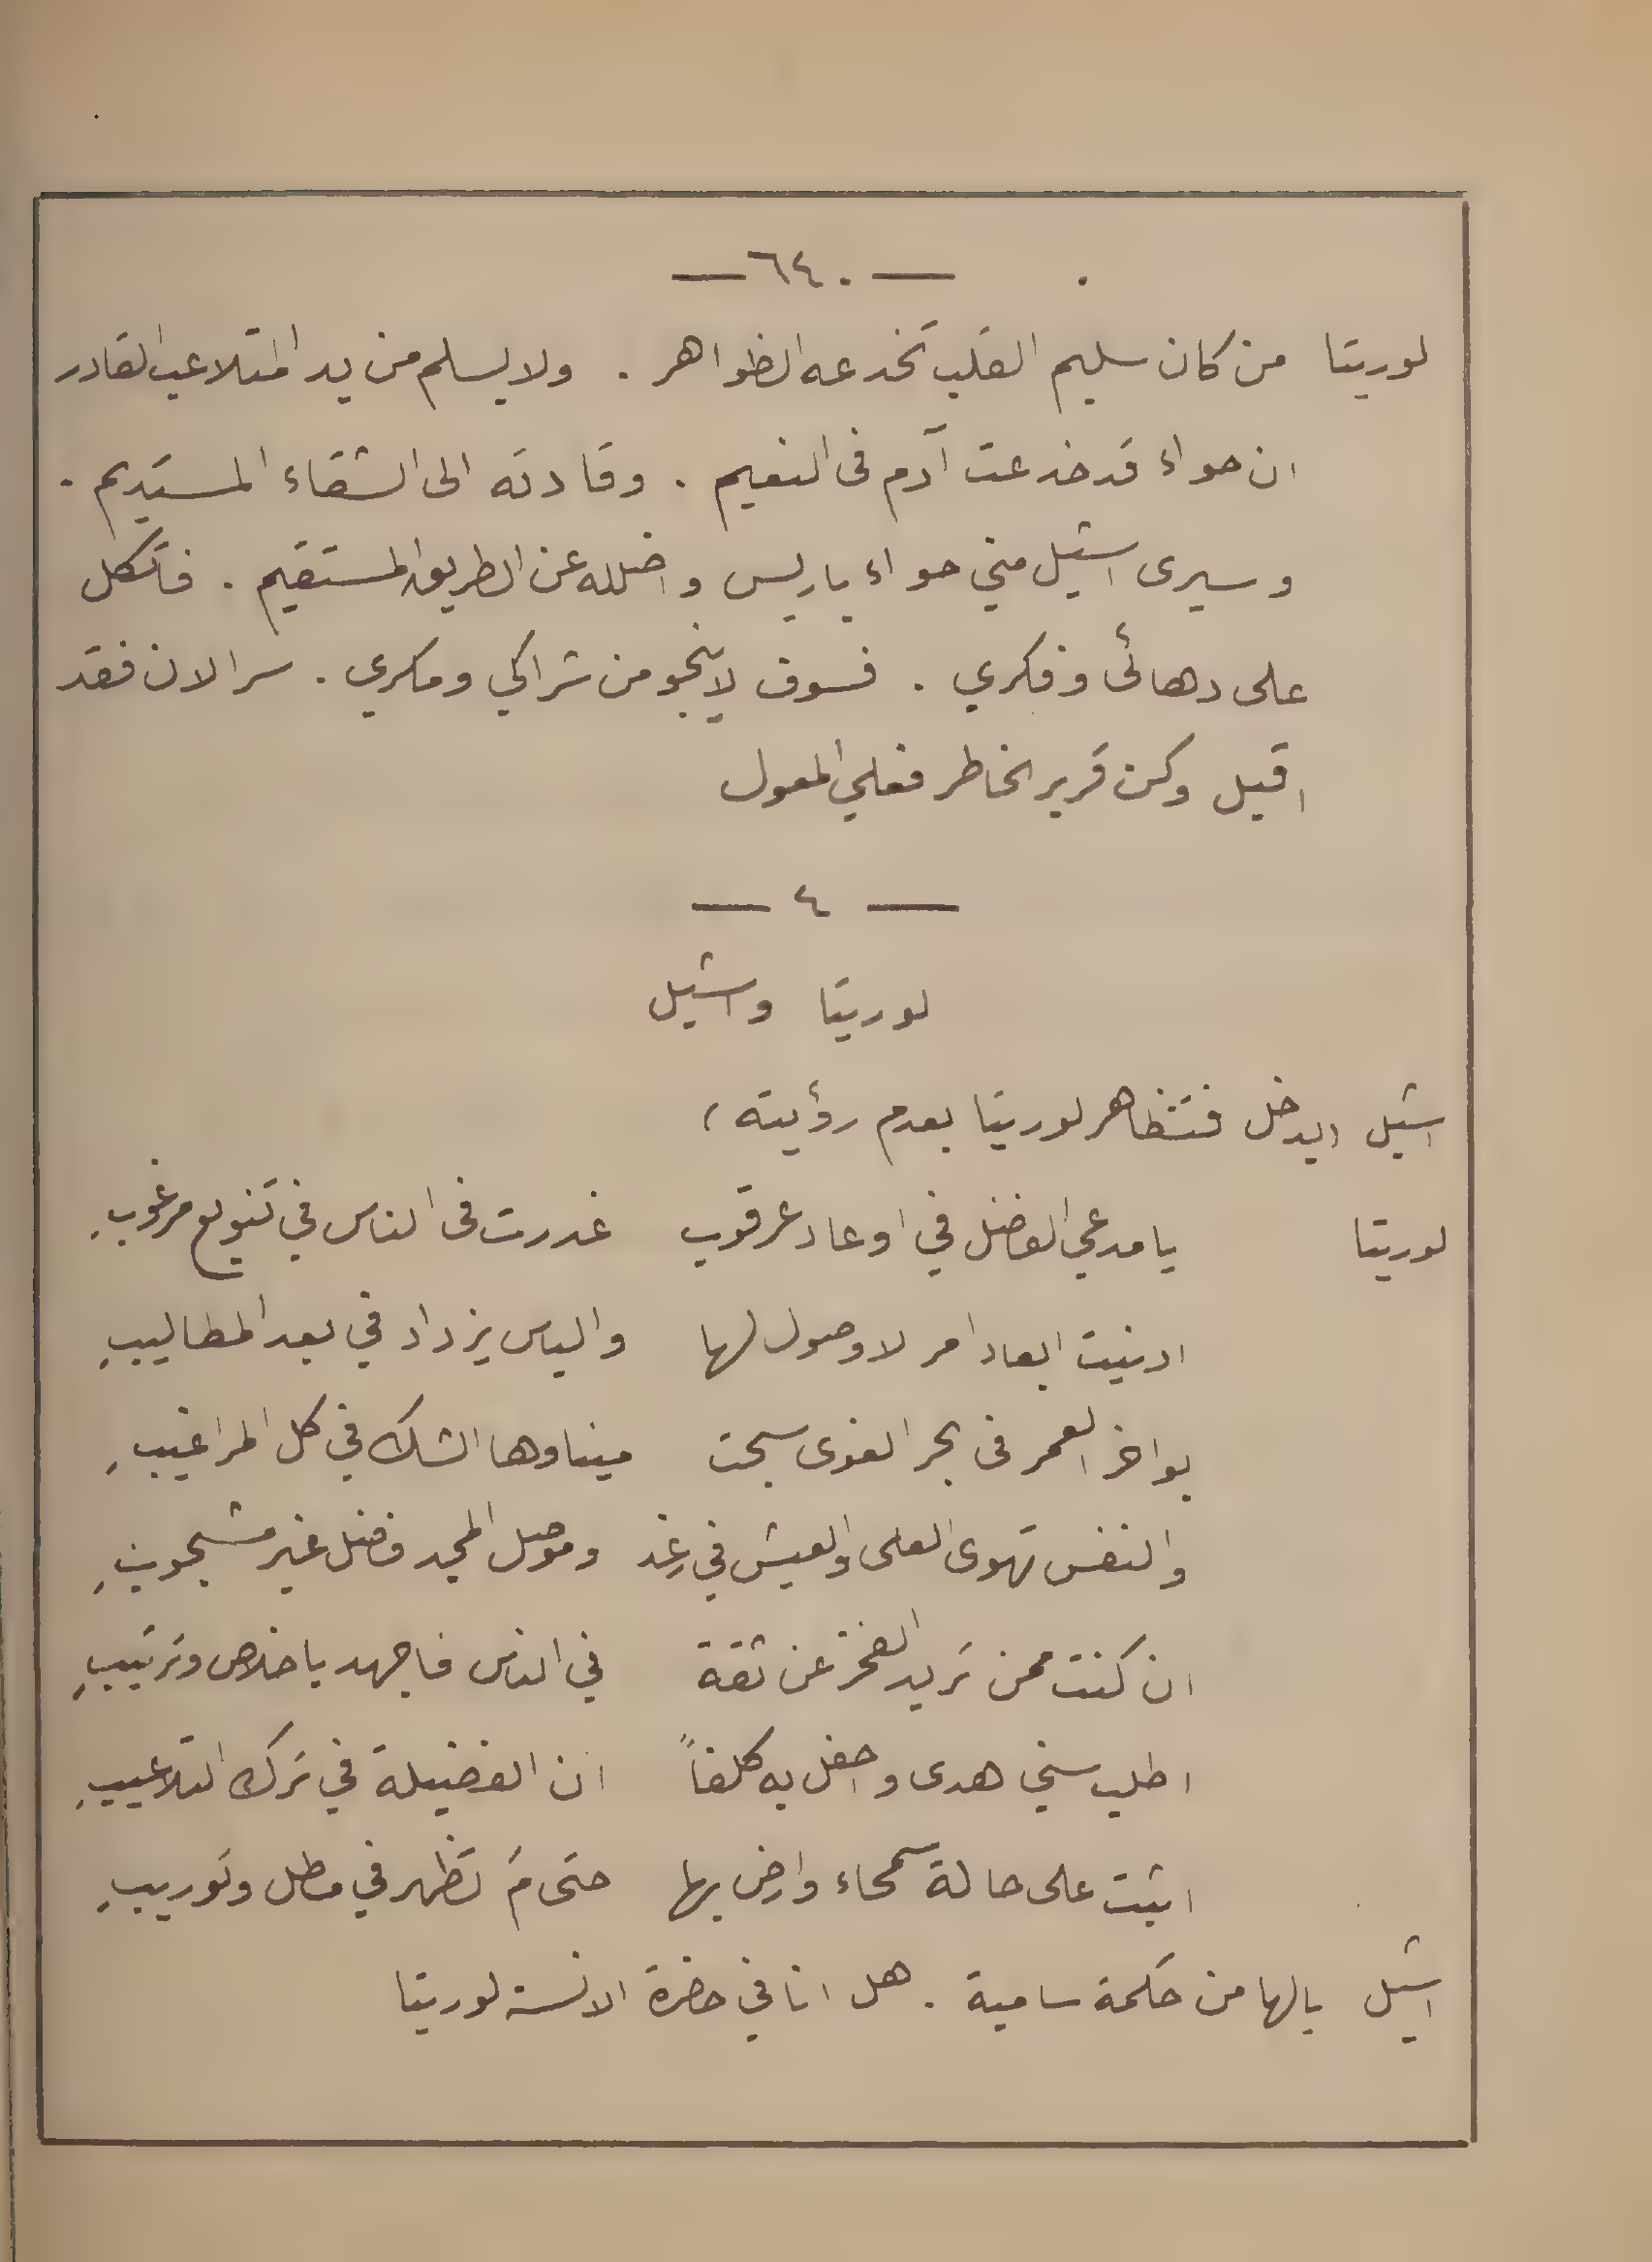 — ٦٤٠ —
لوريتا من كان سليم القلب تخدعه الظواهر . ولا يسلم من يد المتلاعب القادر
ان حواء قد خدعت آدم فى النعيم . وقادته الى الشقاء المستديم .
وسيرى اشيل مني حواء باريس واضلله عن الطريق المستقيم . فاتكل
على دهائى وفكري . فسوف لا ينجو من شراكي ومكري . سر الان فقد
اقبل وكن قرير الخاطر فعلي المعول
— ٤ —
لوريتا واشيل
اشيل (يدخل فتتظاهر لوريتا بعدم رؤيته)
لوريتا يا مدعي الفضل في اوعاد عرقوب غدرت فى الناس في تنويع مرغوبِ
ادنيت ابعاد امر لا وصول لها والياس يزداد في بعد المطاليبِ
بواخر العمر فى بحر الغوى سبحت ميناوها الشك في كل المراغيبِ
والنفس تهوى العلى والعيش في رغد وموصل المجد فضل غير مشجوبِ
ان كنت ممن تريد الفخر عن ثقة في الناس فاجهد باخلاص وترتيبِ
اطلب سني هدى واحفل به كلفاً ان الفضيلة في ترك التلاعيبِ
اثبت على حالة سمحاء وارض بها حتى مَ تظهر في مطل وتوريبِ
اشيل يالها من حكمة سامية . هل انا في حضرة الانسة لوريتا